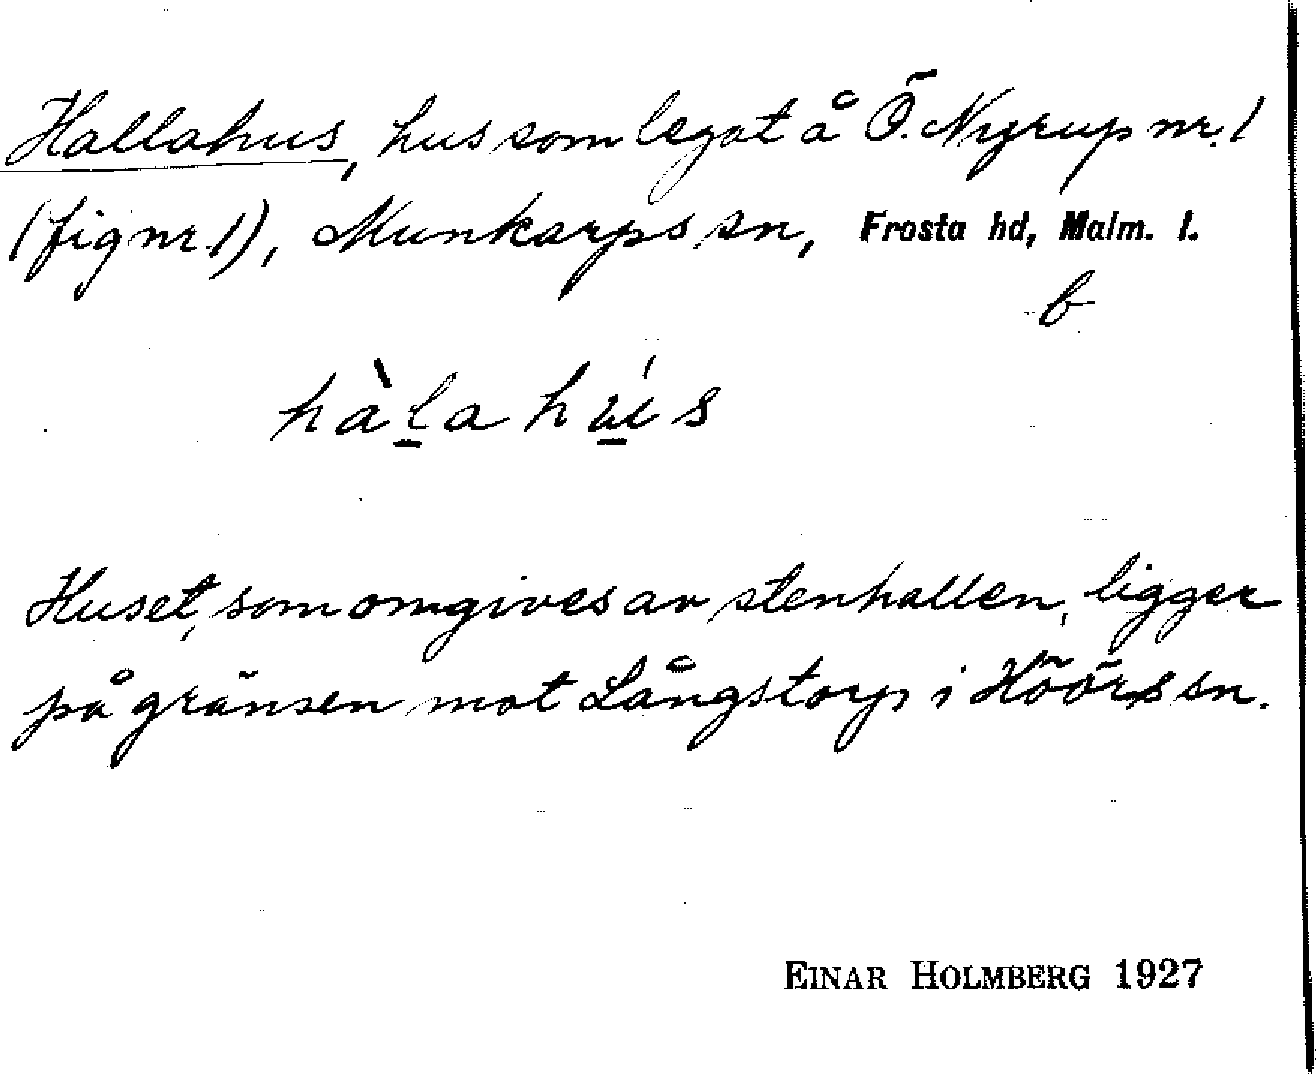 Hallahus, hus som legat å Ö. Nyrup nr. 1
(fig nr 1), Munkarps sn, Frosta hd, Malm. l.
b
hàlahús
Huset, som omgives av stenhallen, ligger
på gränsen mot Långstorp i Höörs sn.
EINAR HOLMBERG 1927